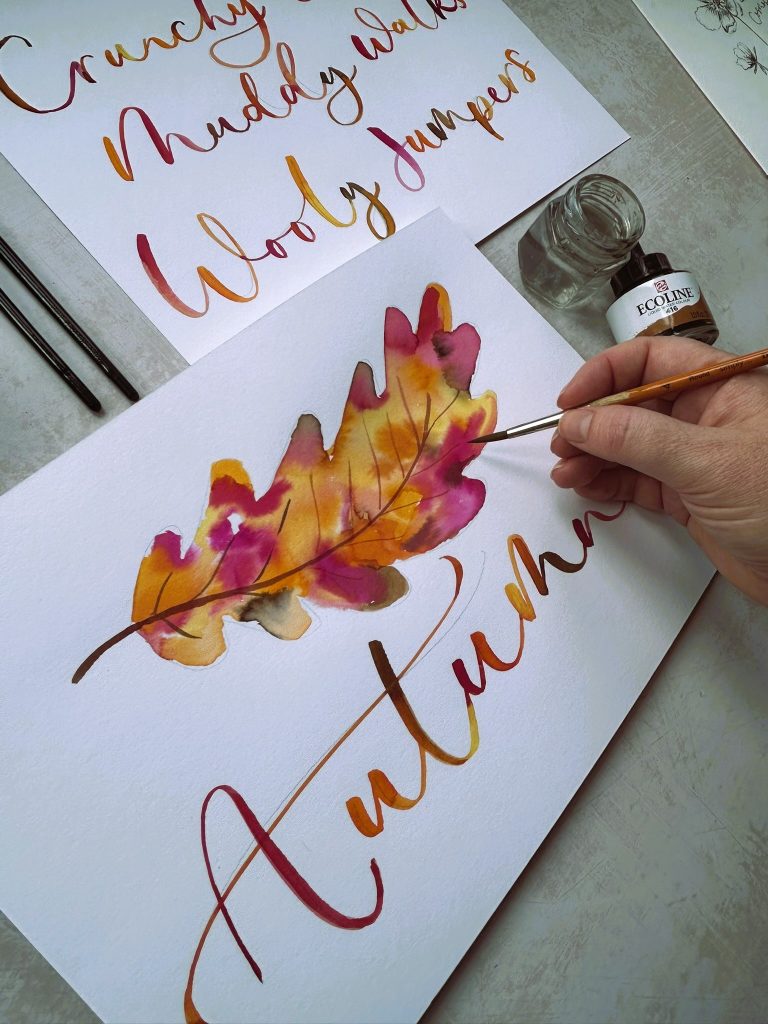 Crunchy
Muddy Walks
Wooly Jumpers
ECOLINE
416
Autumn